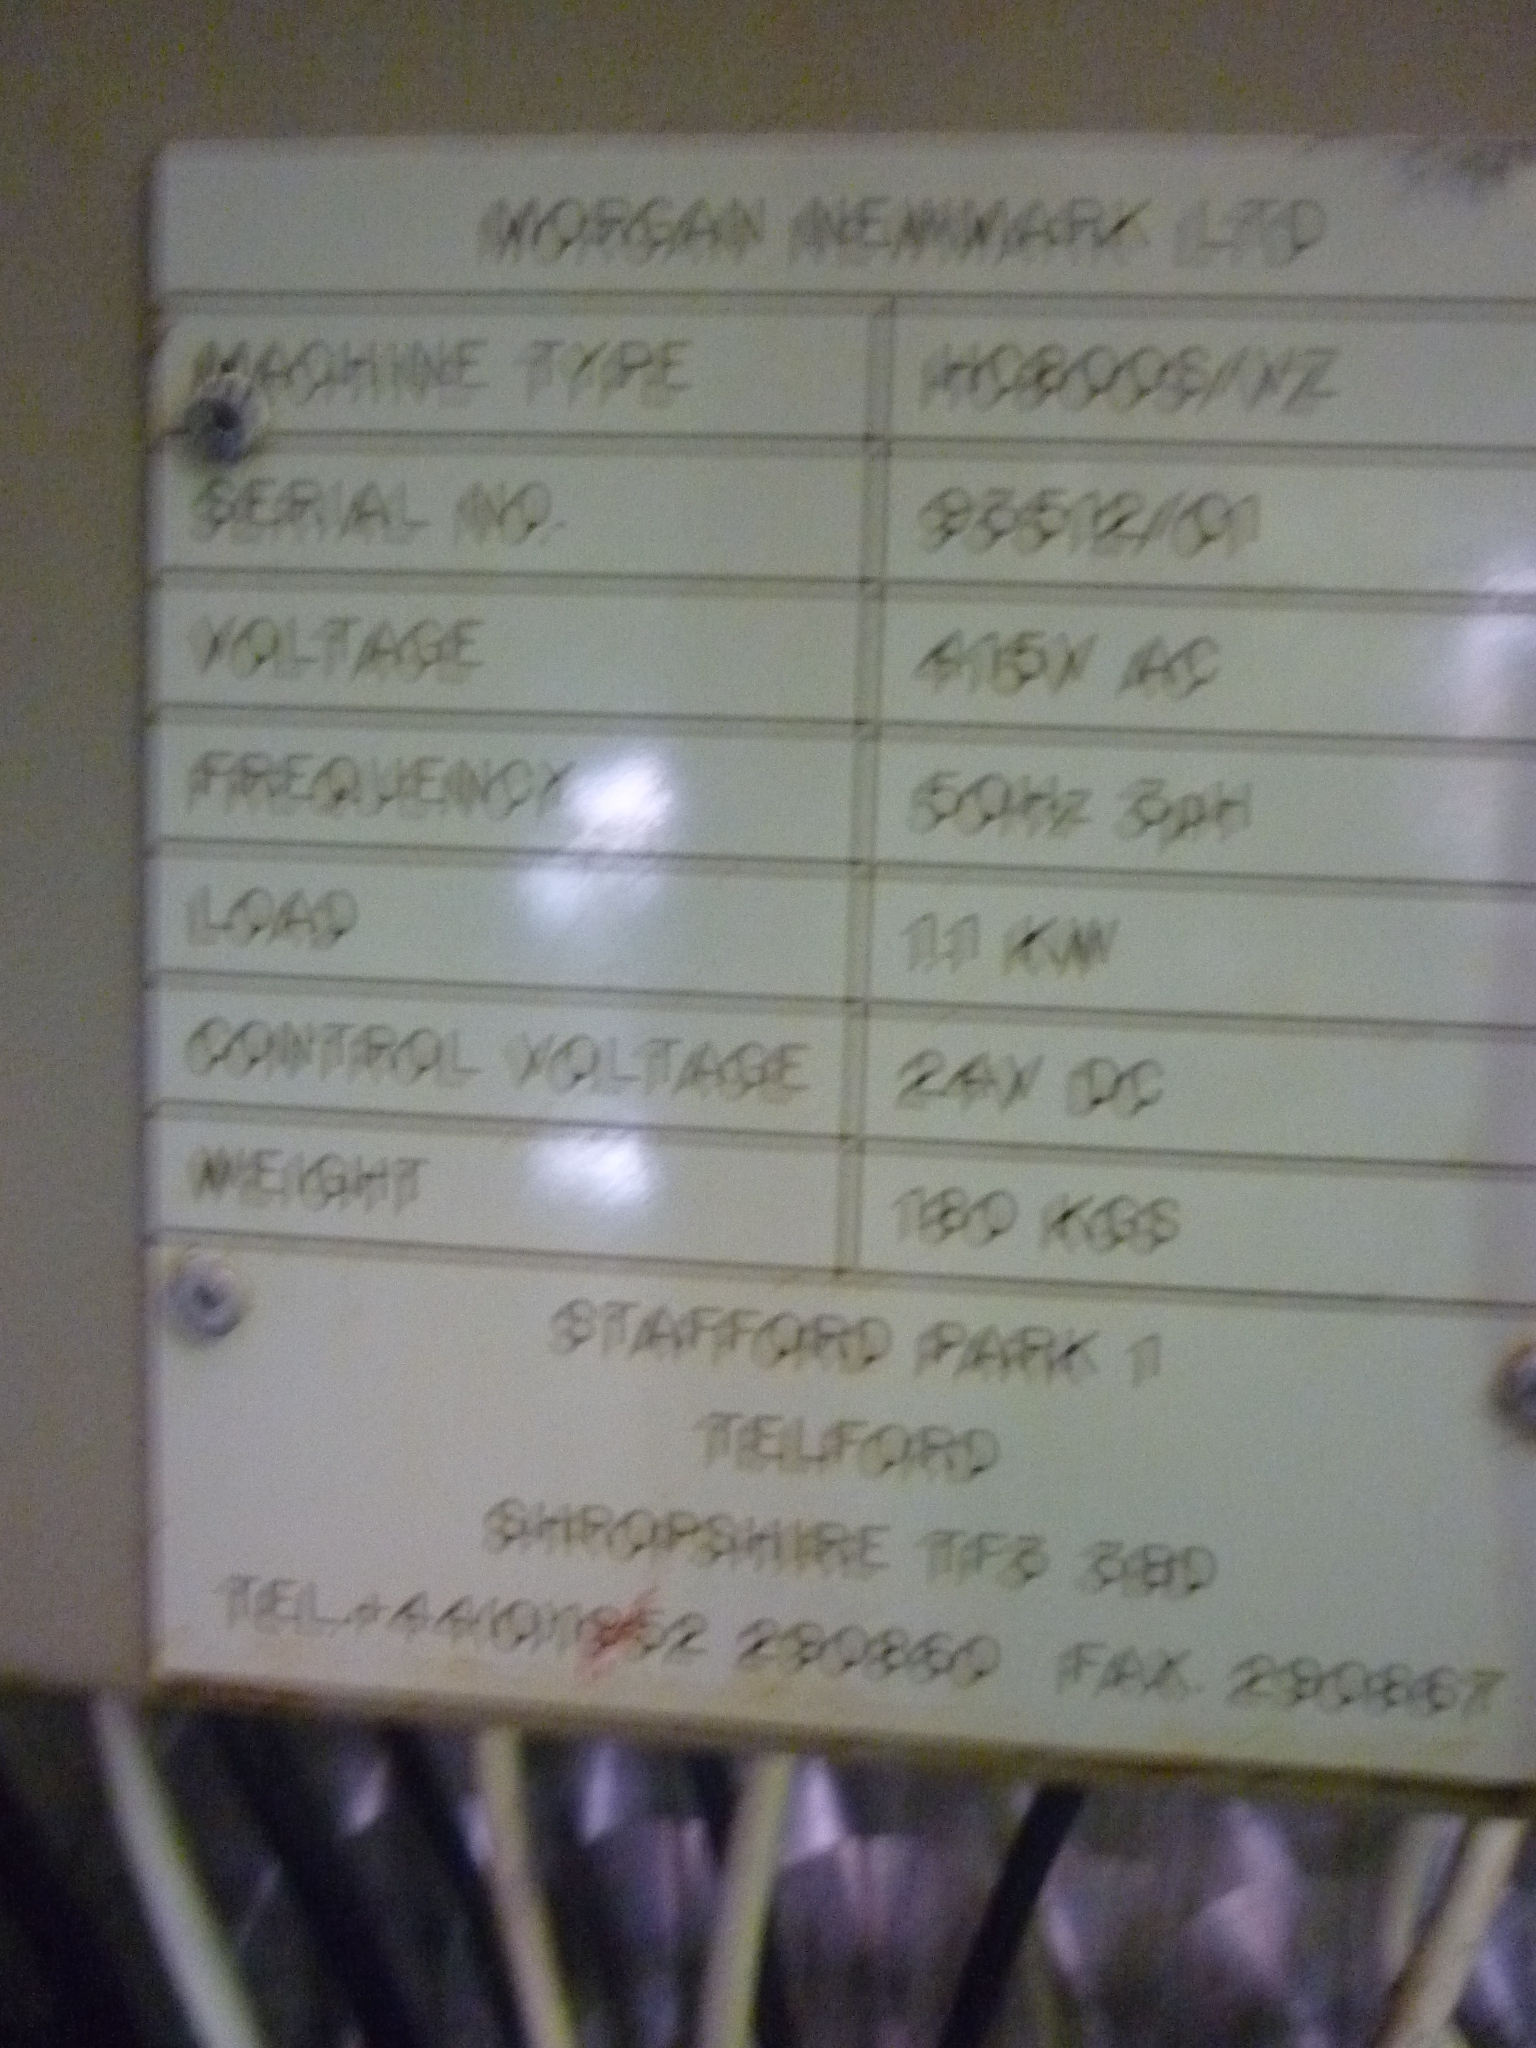 MORGAN NEWMARK LTD
MACHINE TYPE
SERIAL NO. 93512/01
VOLTAGE 415V AC
FREQUENCY 50Hz 3pH
LOAD 11 KW
CONTROL VOLTAGE 24V DC
WEIGHT 180 KGS
STAFFORD PARK 1
TELFORD
SHROPSHIRE TF3 3BD
TEL.+44(0)1952 290860 FAX. 290867